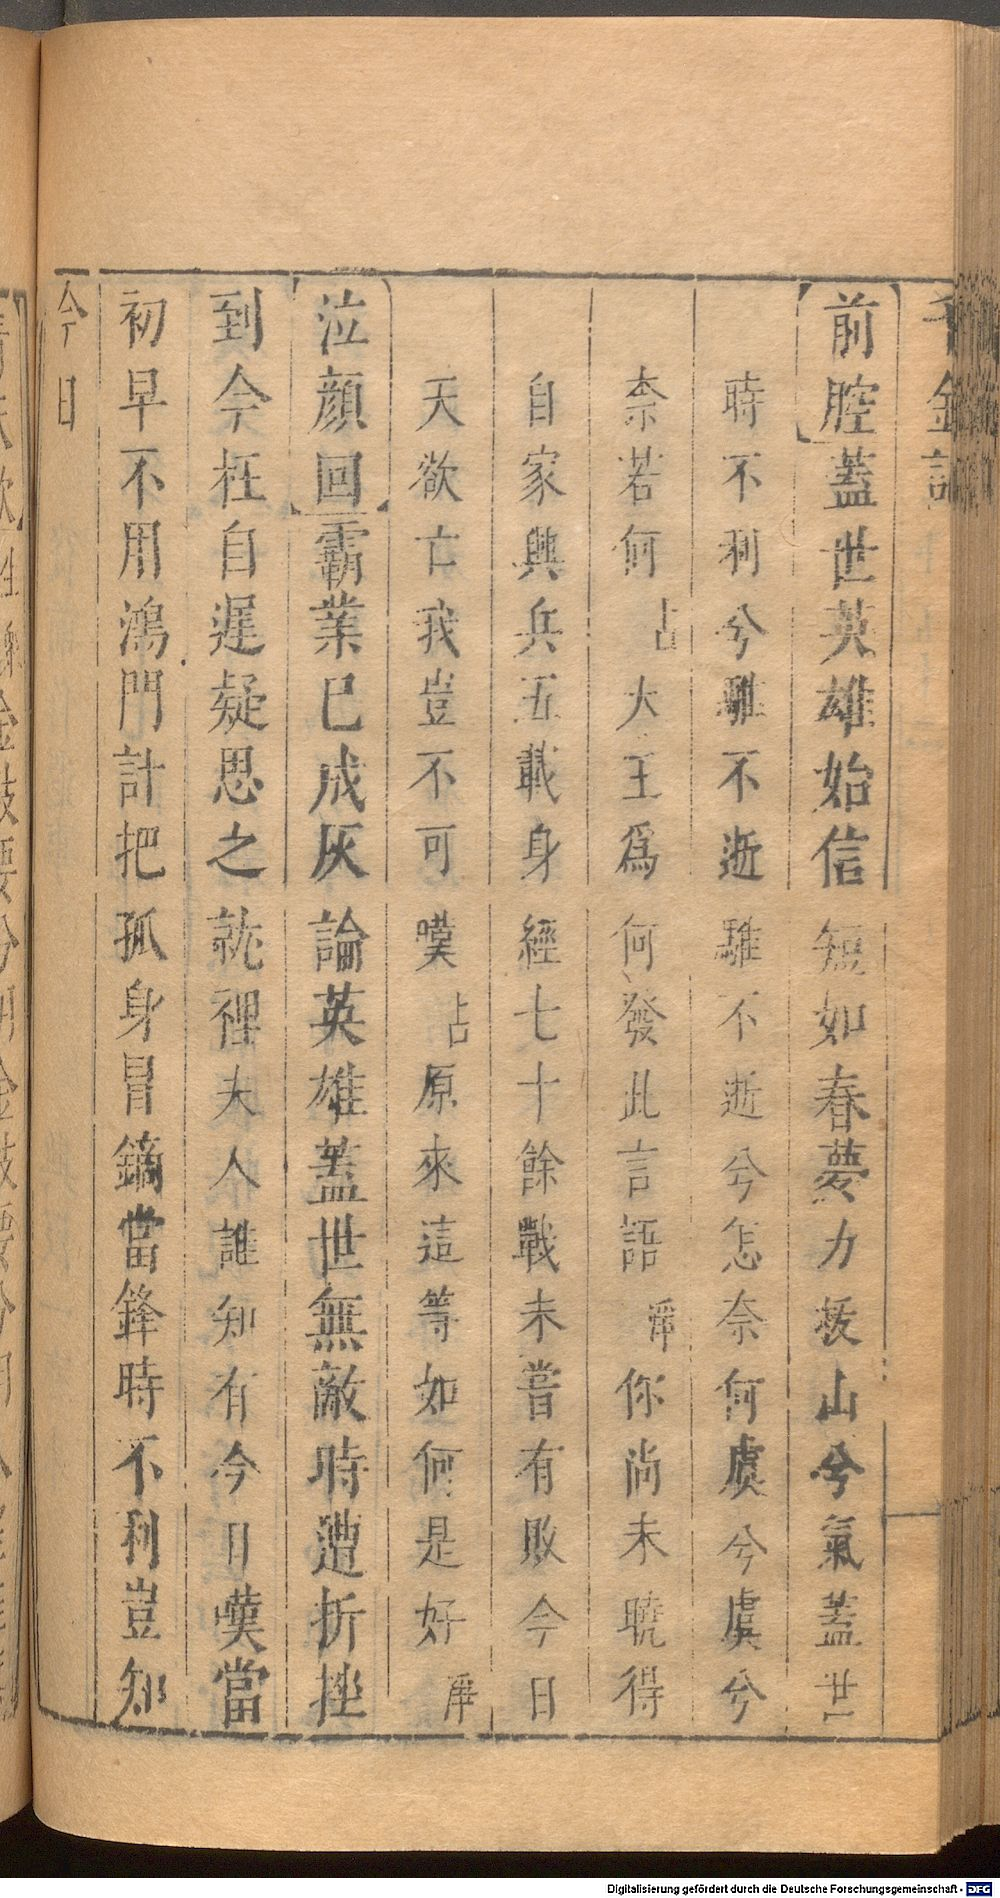 千金記
前腔蓋世英雄始信短如春夢力拔山兮氣蓋世
時不利兮騅不逝騅不逝兮怎奈何虞兮虞兮
奈若何占大王爲何發此言語淨你尚未曉得
自家興兵五載身經七十餘戰未嘗有敗今日
天欲亡我豈不可嘆占原來這等如何是好淨
泣顔回霸業已成灰論英雄蓋世無敵時遭折挫
到今枉自遲疑思之就裡夫人誰知有今日嘆當
初早不用鴻門計把孤身冒鏑當鋒時不利豈知
今日
Digitalisierung gefördert durch die Deutsche Forschungsgemeinschaft - DFG